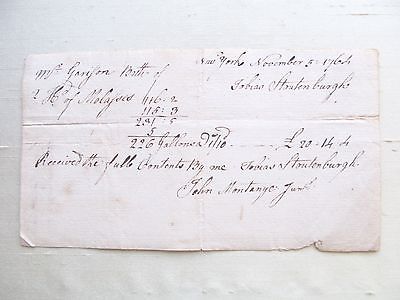 New York November 5: 1764
Mr. Garison Bott. of Tobias Stoutenburgh
2 Hds. of Molasses 116=2
115=3
231=5
5
226 Gallons @ 1/10 £20-14-4
Received the full Contents By me Tobias Stoutenburgh
John Montanye Junr.